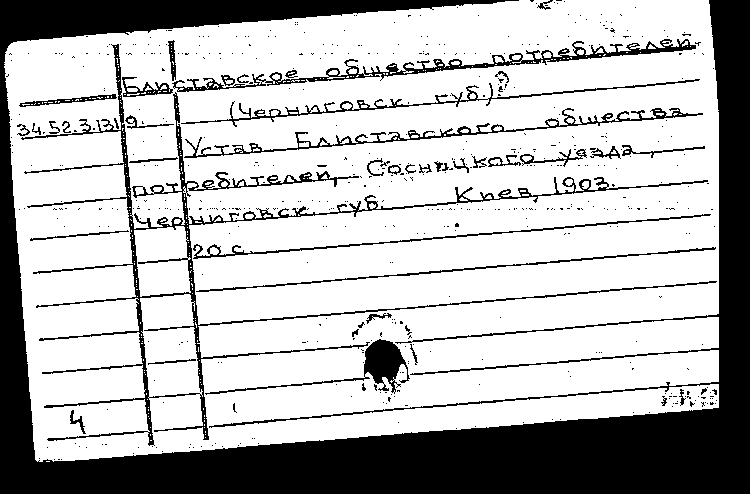 Блиставское общество потребителей
(Черниговск. губ.)?
34.52.3.131 9.
Устав Блиставского общества
потребителей, Сосницкого уезда,
Черниговск. губ. Киев, 1903.
20 с.
4